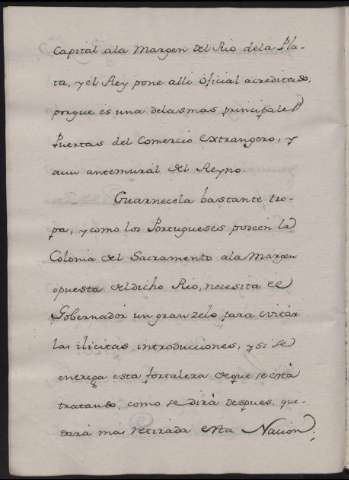 Capital ala Margen del Rio dela Pla-
ta, y el Rey pone alli Oficial acreditado,
porque es una delas mas principales
Puertas del Comercio extrangero, y
aun antemural del Reyno.
Guarnecela bastante tro-
pa, y como los Portugueses poseen la
Colonia del Sacramento ala Margen
opuesta del dicho Rio, necesita el
Gobernador un gran zelo para evitar
las ilicitas introducciones, y si se
entrega esta fortaleza de que se està
tratando, como se dirà despues, que-
darà mas retirada esta Nacion,